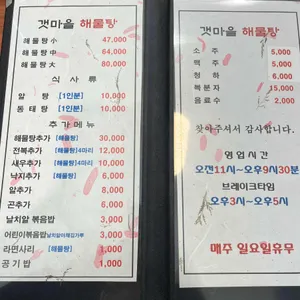 갯마을 해물탕
해물탕 小 47,000
해물탕 中 64,000
해물탕 大 80,000
식 사 류
알 탕 [1인분] 10,000
동 태 탕 [1인분] 10,000
추 가 메 뉴
해물탕추가 [해물탕] 30,000
전복추가 [해물탕]4마리 12,000
새우추가 [해물탕]4마리 10,000
낙지추가 [해물탕] 6,000
알추가 8,000
곤추가 6,000
날치알 볶음밥 3,000
어린이볶음밥 3,000
라면사리 [해물탕] 1,000
공 기 밥 1,000
갯마을 해물탕
소 주 5,000
맥 주 5,000
청 하 6,000
복분자 15,000
음료수 2,000
찾아주셔서 감사합니다.
영 업 시 간
오전11시~오후9시30분
브레이크타임
오후3시~오후5시
매주 일요일휴무